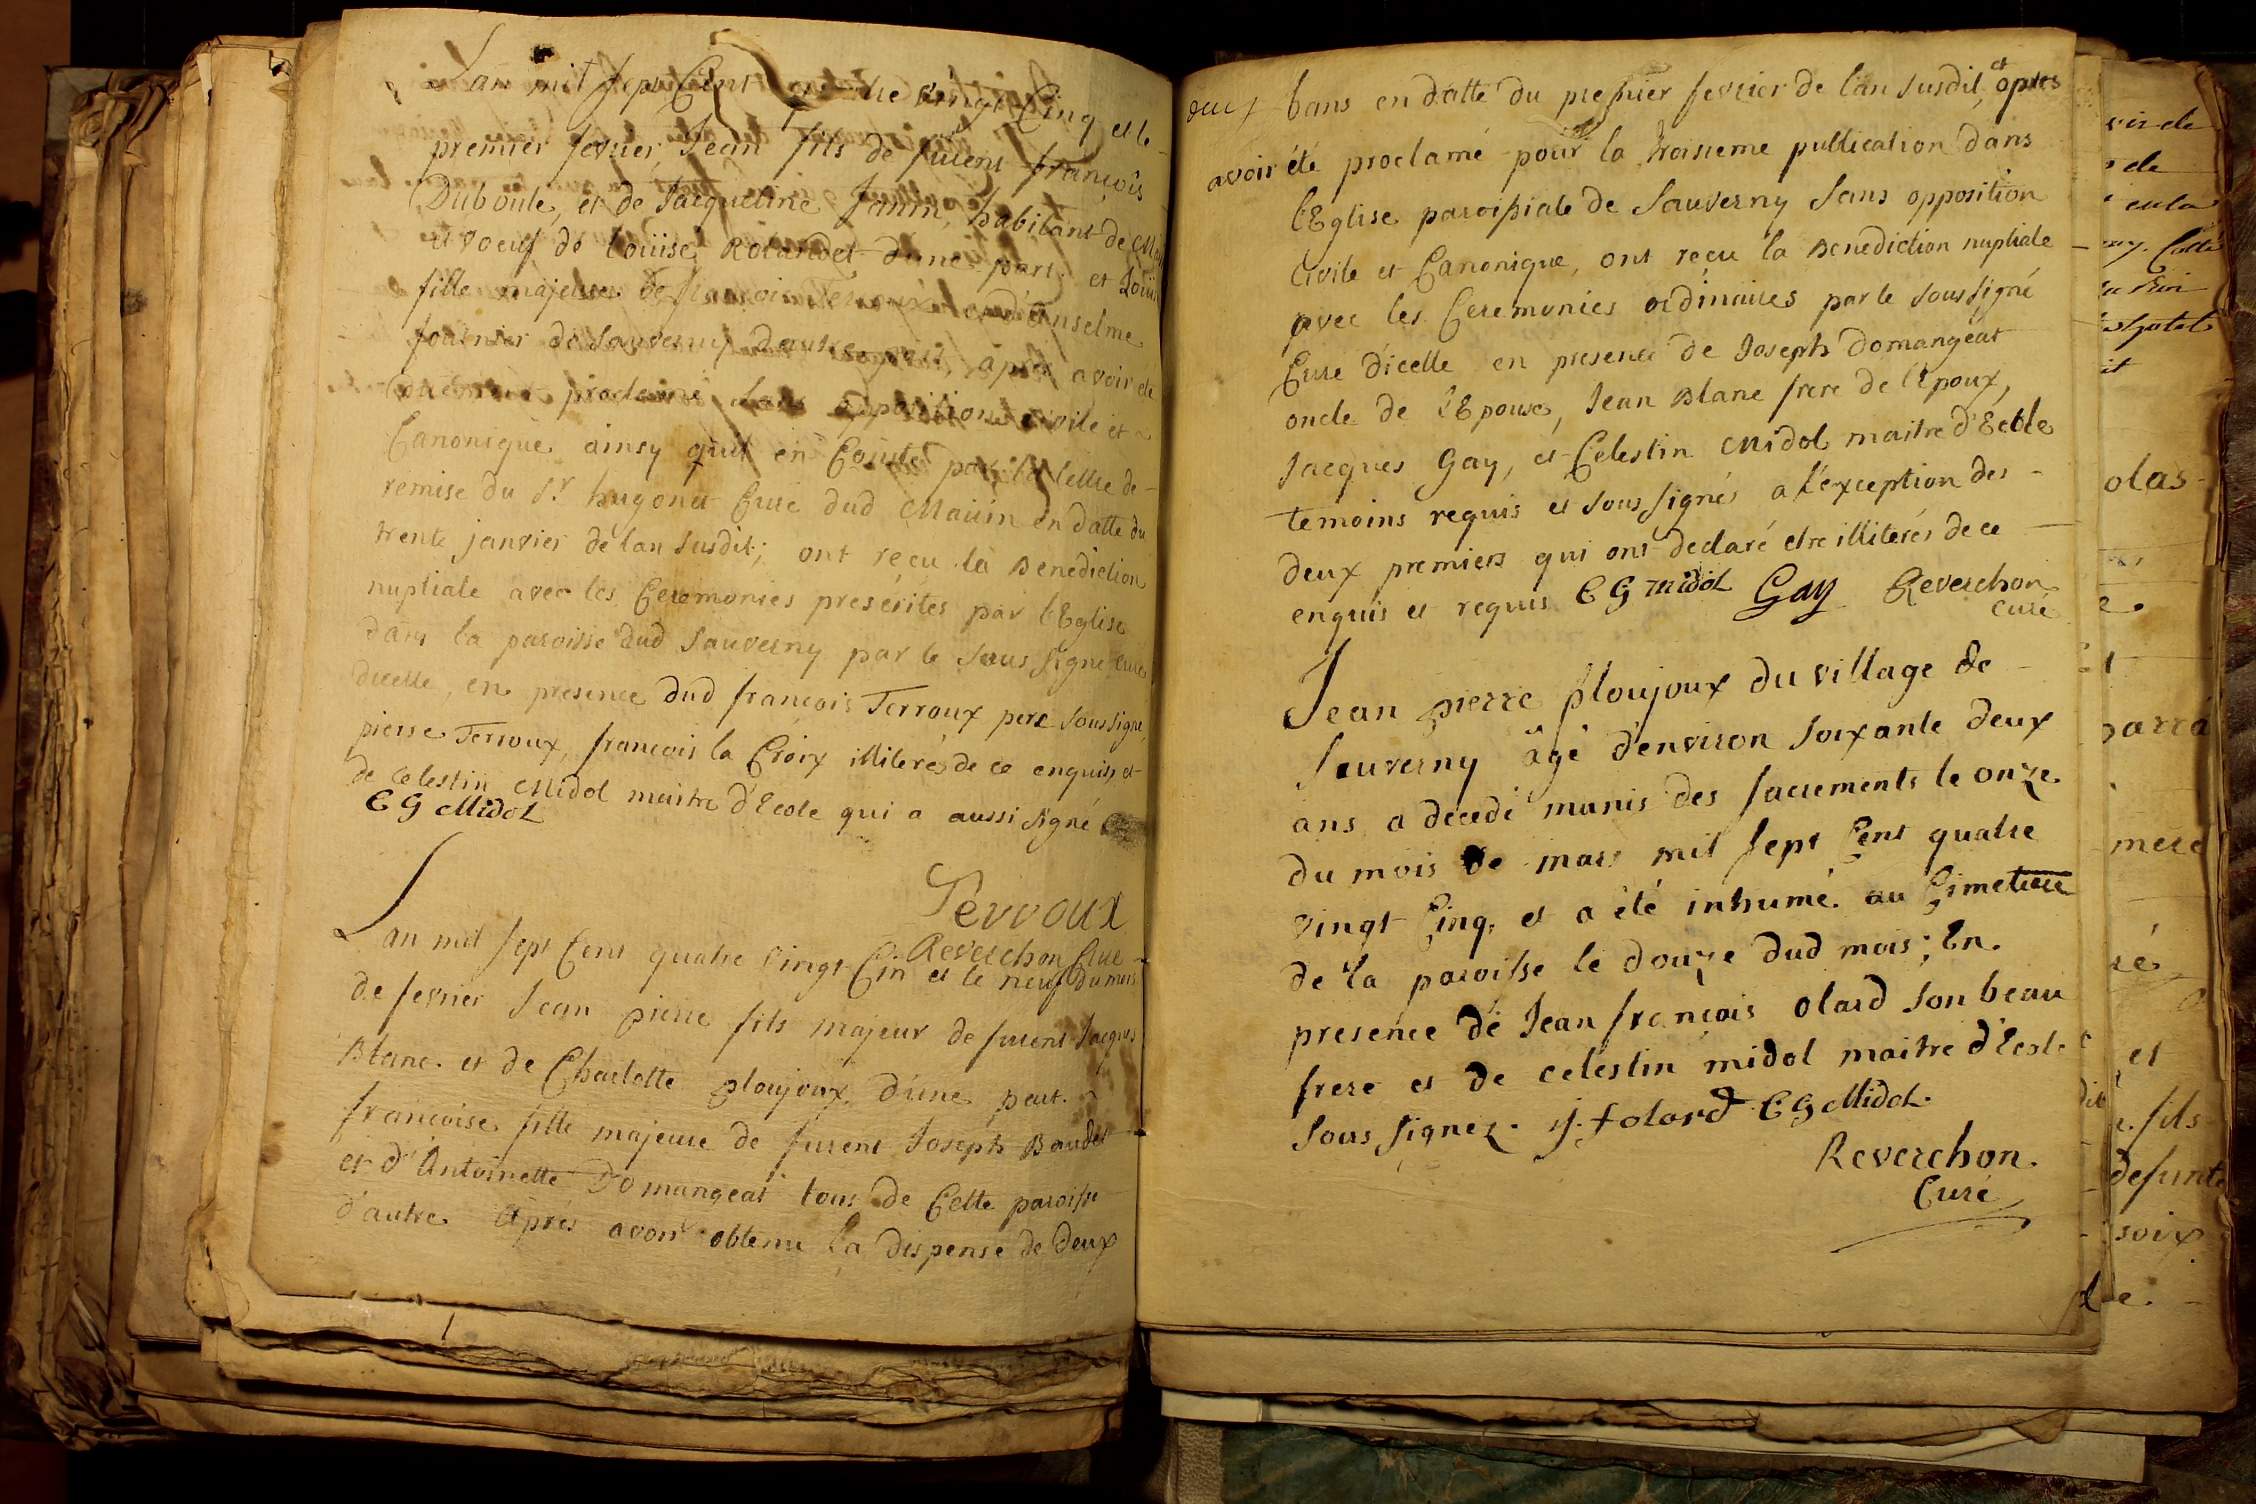 Lan mil sept Cent quatre vingt Cinq et le
premier fevrier, Jean fils de furent françois
Duboule, et de Jacqueline Janin, habitant de
et voeuf de Loüise Rolandet d'une part; et Loüise
fille majeure de françois Terroux et d'Anselme
fournier de Sauverny d'autre part, après avoir ete
proclamé sans opposition civile et
Canonique ainsy quil en Conste par la lettre de
remise du Sr. hugonet Curé dud Mauïn en datte du
trente janvier de lan susdit; ont reçu la Benediction
nuptiale avec les Ceremonies presérites par l'Eglise
dans la paroisse dud Sauverny par le sous signé Curé
dicelle, en presence dud françois Terroux pere soussigné,
pierre Terroux, françois la Croix illiterés de ce enquis et
de Celestin Midol maitre d'Ecole qui a aussi signé
C G Midol
Terroux
Reverchon Curé
Lan mil sept Cent quatre vingt Cin et le neuf du mois
de fevrier Jean pierre fils majeur de furent Jacques
Blanc et de Charlotte ploujoux d'une part.
françoise fille majeure de furent Joseph Baudet
et d'Antoinette Domangeat tous de Cette paroisse
d'autre. Après avoir obtenu la dispense de deux
deux bans en datte du premier fevrier de lan susdit, et après
avoir été proclamé pour la troisieme publication dans
l'Eglise paroissiale de Sauverny sans opposition
Civile et Canonique, ont reçu la Benediction nuptiale
avec les Ceremonies ordinaires par le sous signé
Curé d'icelle en presence de Joseph Domangeat
oncle de l'Epouse, Jean Blanc frere de l'Epoux,
Jacques Gay, et Celestin Midol maitre d'Ecole
temoins requis et sous signés a l'exception des
deux premiers qui ont declaré etre illiterés de ce
enquis et requis C G Midol Gay Reverchon
curé
Jean pierre ploujoux du village de
Sauverny âgé d'environ soixante deux
ans a décedé munis des sacrements le onze
du mois de mars mil sept Cent quatre
vingt Cinq, et a été inhumé au Cimetiere
de la paroisse le douze dud mois; En
presence de Jean françois olard son beau
frere et de celestin midol maitre d'Ecole
sous signez. j. f olard C G Midol.
Reverchon.
Curé
olas
mere
et
fils
defunte
soix